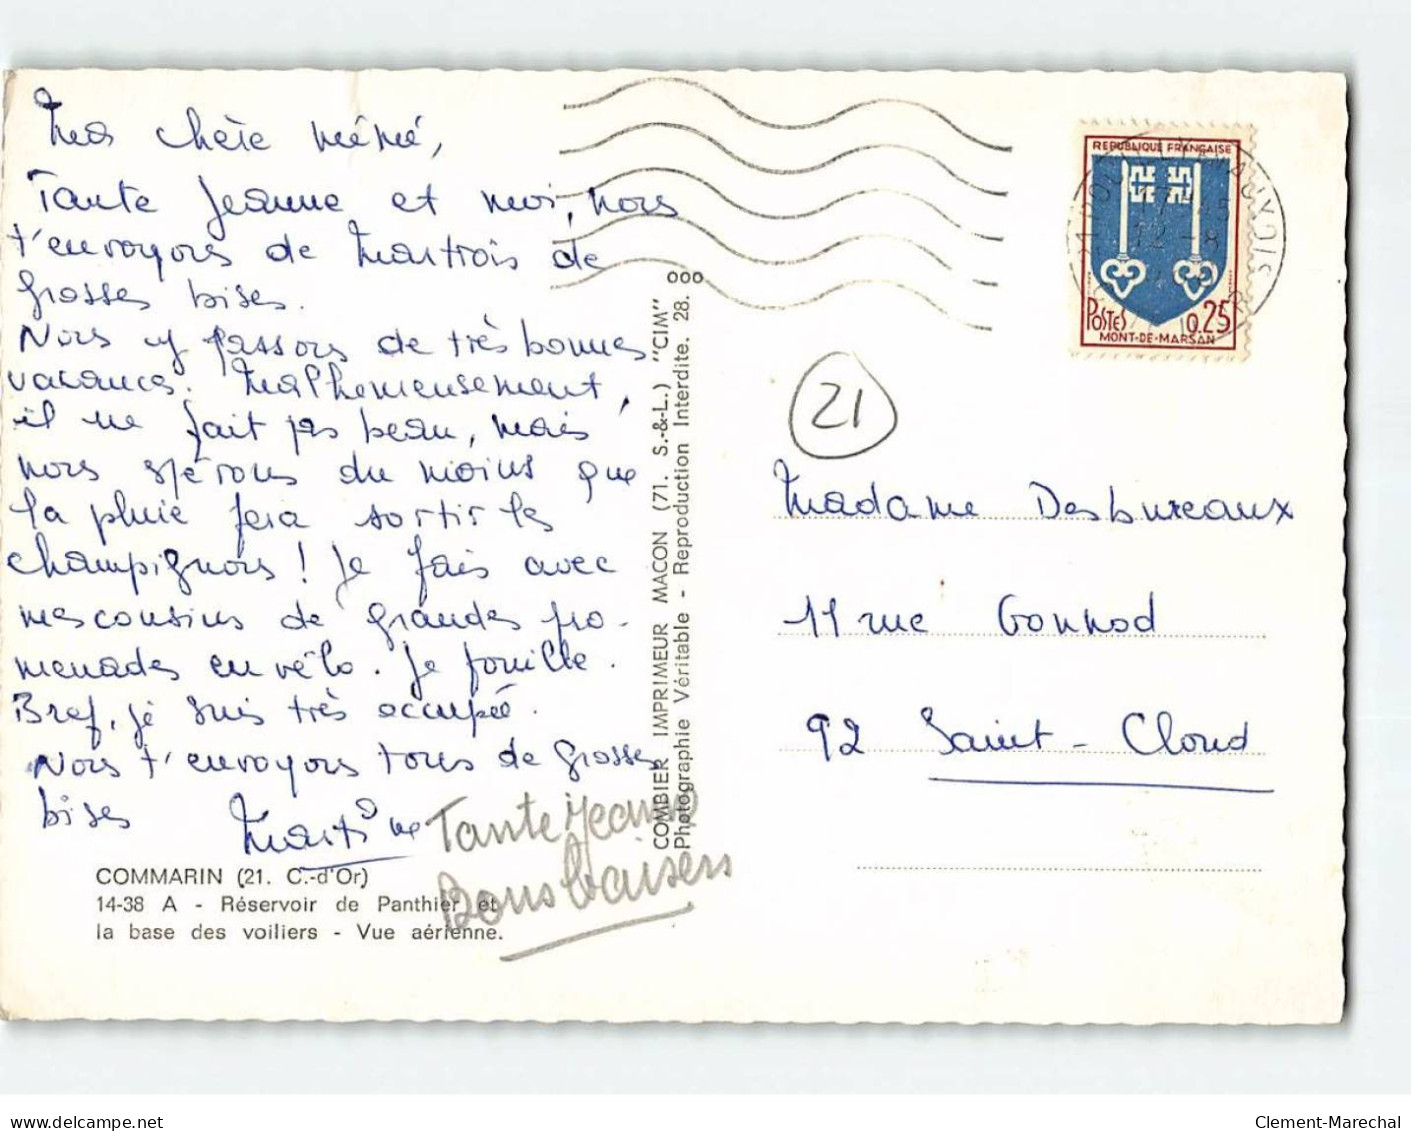 Ma chère mémé,
Tante Jeanne et moi, nous
t'envoyons de Martrois de
grosses bises.
Nous y passons de très bonnes
vacances. Malheureusement,
il ne fait pas beau, mais
nous espérons du moins que
la pluie fera sortir les
champignons ! Je fais avec
mes cousins de grandes pro-
menades en vélo. Je fouille.
Bref, je suis très occupée.
Nous t'envoyons tous de grosses
bises
Martine
Tante Jeanne
Bons baisers
COMMARIN (21. C.-d'Or)
14-38 A - Réservoir de Panthier et
la base des voiliers - Vue aérienne.
COMBIER IMPRIMEUR MACON (71. S.-&-L.) "CIM"
Photographie Véritable - Reproduction Interdite. 28. ooo
REPUBLIQUE FRANÇAISE
POSTES 0,25
MONT-DE-MARSAN
21
Madame Desbureaux
11 rue Gounod
92 Saint-Cloud
delcampe.net
Clement-Marechal